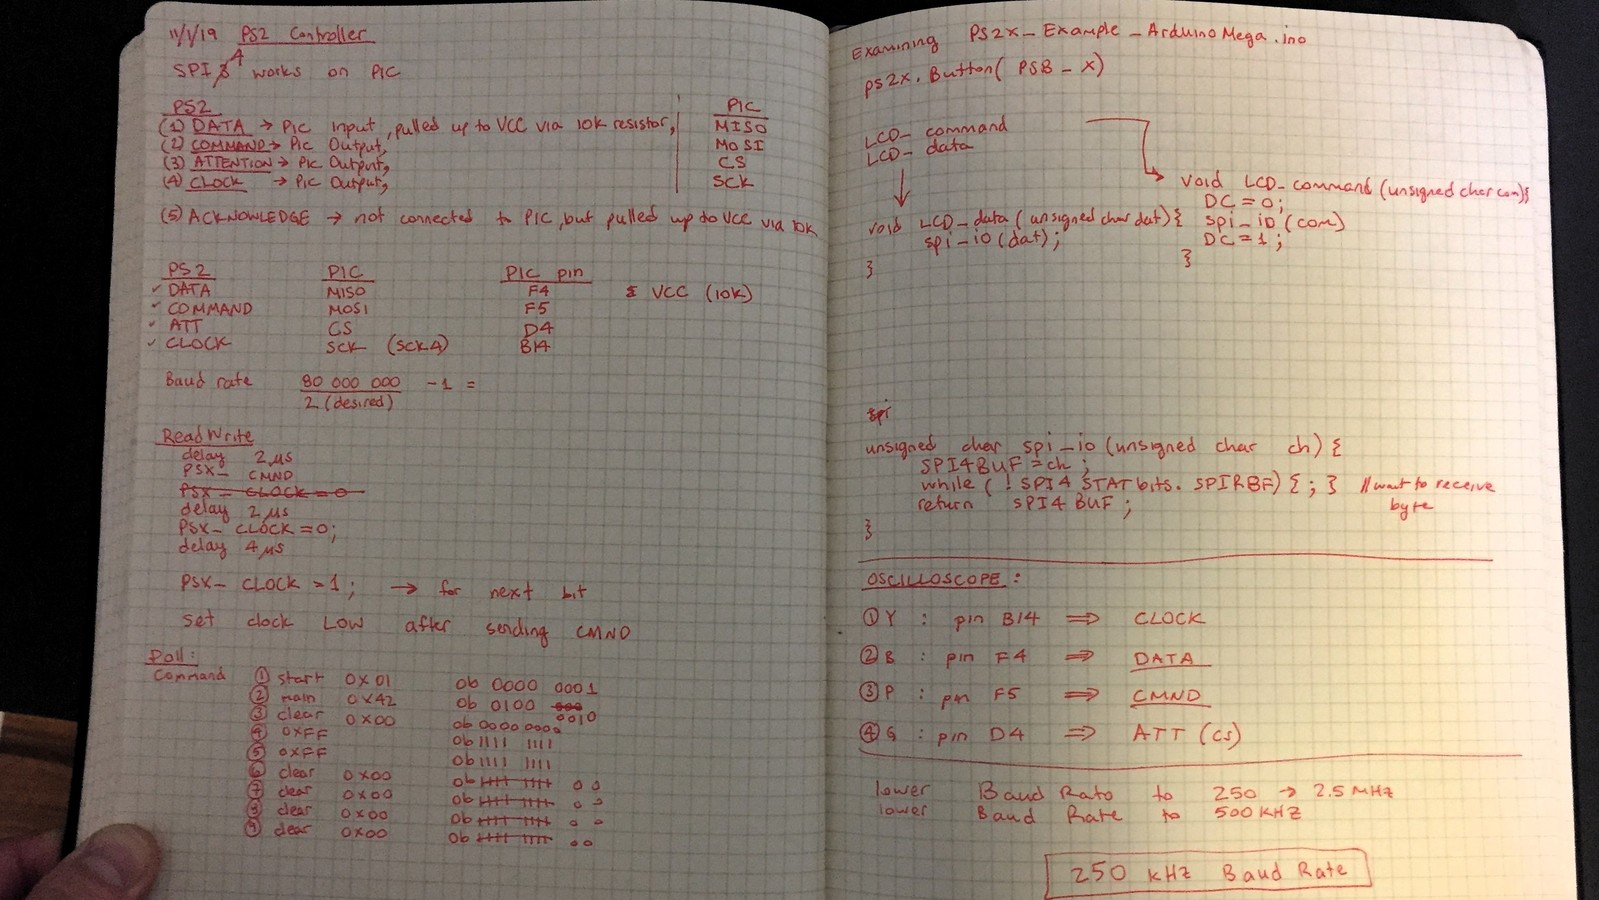 11/1/19 PS2 Controller
SPI 4 works on PIC
PS2 PIC
(1) DATA → PIC Input, pulled up to VCC via 10k resistor, MISO
(2) COMMAND → PIC Output, MOSI
(3) ATTENTION → PIC Output, CS
(4) CLOCK → PIC Output, SCK
(5) ACKNOWLEDGE → not connected to PIC, but pulled up to VCC via 10K
PS2 PIC PIC pin
✓ DATA MISO F4 & VCC (10K)
✓ COMMAND MOSI F5
✓ ATT CS D4
✓ CLOCK SCK (SCK4) B14
Baud rate 80 000 000 -1 =
2 (desired)
Read Write
delay 2 μs
PSX_ CMND
PSX_ CLOCK = 0
delay 2 μs
PSX_ CLOCK = 0;
delay 4 μs
PSX_ CLOCK = 1; → for next bit
set clock LOW after sending CMND
Poll:
Command ① start 0X01 0b 0000 0001
② main 0X42 0b 0100 0010
③ clear 0X00 0b 0000 0000
④ 0XFF 0b 1111 1111
⑤ 0XFF 0b 1111 1111
⑥ clear 0X00 0b 1111 1111 0 0
⑦ clear 0X00 0b 1111 1111 0 0
⑧ clear 0X00 0b 1111 1111 0 0
⑨ clear 0X00 0b 1111 1111 0 0
Examining PS2X_Example_ArduinoMega.ino
ps2x.Button( PSB_X)
LCD_ command
LCD_ data
void LCD_command (unsigned char com){
DC = 0;
spi_io (com)
DC = 1;
}
void LCD_data ( unsigned char dat) {
spi_io (dat);
}
spi
unsigned char spi_io (unsigned char ch) {
SPI4BUF = ch ;
while ( ! SPI4 STAT bits. SPIRBF) { ; } // want to receive
byte
return SPI4 BUF ;
}
OSCILLOSCOPE :
① Y : pin B14 ⇒ CLOCK
② B : pin F4 ⇒ DATA
③ P : pin F5 ⇒ CMND
④ G : pin D4 ⇒ ATT (CS)
lower Baud Rate to 250 → 2.5 MHz
lower Baud Rate to 500 KHZ
250 kHz Baud Rate